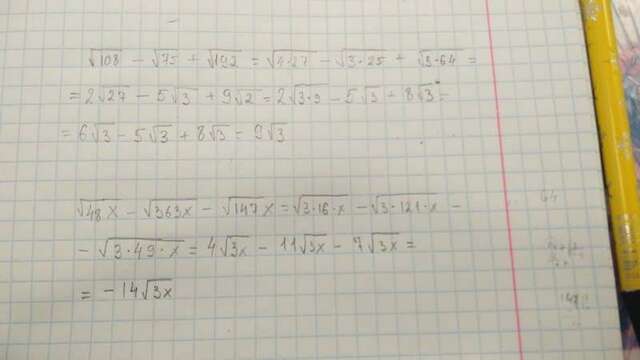 √108 - √75 + √192 = √4·27 - √3·25 + √3·64 =
= 2√27 - 5√3 + 9√2 = 2√3·9 - 5√3 + 8√3 =
= 6√3 - 5√3 + 8√3 = 9√3
√48x - √363x - √147x = √3·16·x - √3·121·x -
- √3·49·x = 4√3x - 11√3x - 7√3x =
= -14√3x